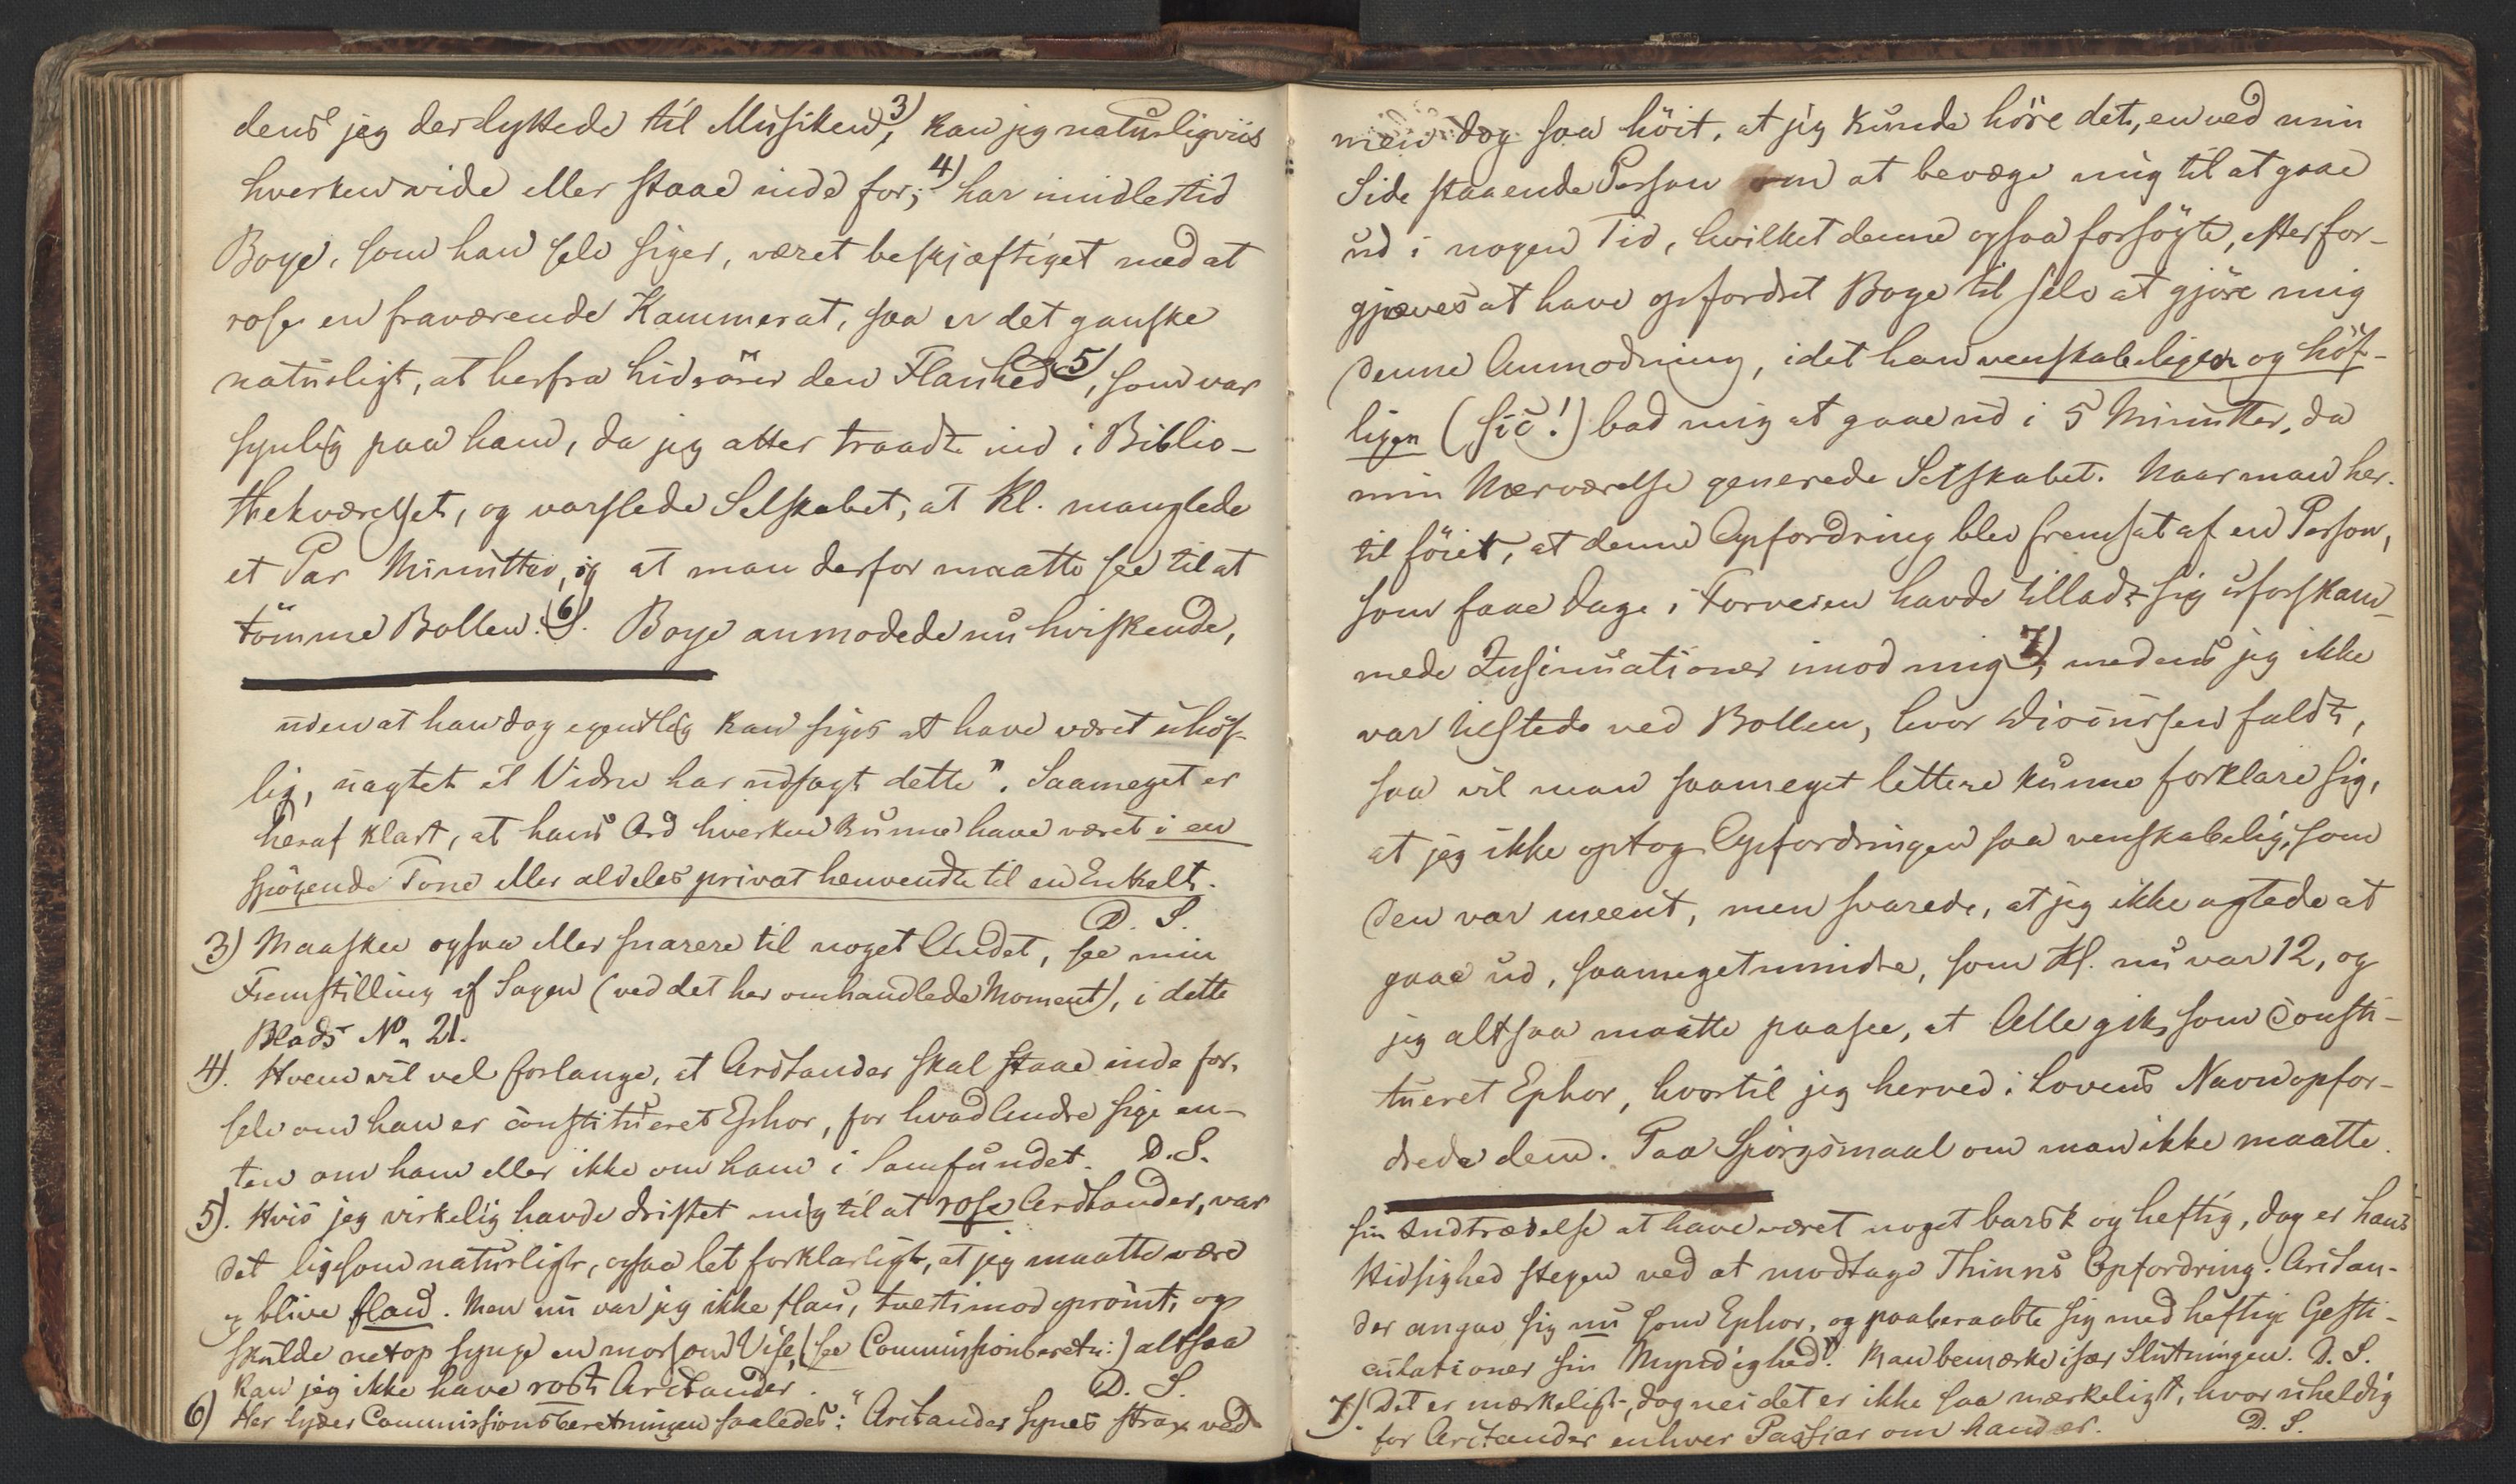 dens jeg der lyttede til Musiken,3) kan jeg naturligviis
hverken vide eller staae inde for;4) har imidlertid
Boye, som han selv siger, været beskjæftiget med at
rose en fraværende Kammerat, saa er det ganske
naturligt, at herfra hidrører den Flauhed5), som var
synlig paa ham, da jeg atter traadte ind i Biblio-
thekværelset, og varslede Selskabet, at Kl. manglede
et Par Minutter, og at man derfor maatte see til at
tömme Bollen.6) Boye anmodede nu hviskende,
uden at han dog egentlig kan siges at have været uhöf-
lig, uagtet et Vidne har udsagt dette". Saameget er
heraf klart, at hans Ord hverken kunne have været i en
spögende Tone eller aldeles privat henvendte til en Enkelt.
D. S.
3) Maaskee ogsaa eller snarere til noget Andet, see min
Fremstilling af Sagen (ved det her omhandlede Moment), i dette
Blads No 21.
4). Hvem vil vel forlange, at Aristander skal staae inde for,
selv om han er constitueret Ephor, for hvad Andre sige en-
ten om ham eller ikke om ham i Samfundet. D. S.
5). Hvis jeg virkelig havde dristet mig til at rose Aristander, var
det ligesom naturligt, ogsaa let forklarligt, at jeg maatte være
og blive flau. Men nu var jeg ikke flau, tvertimod oprömt, og
skulde netop synge en morsom Vise, (see Commissionsberetn:) altsaa
kan jeg ikke have rost Aristander. D. S.
6) Her lyder Commissionsberetningen saaledes: "Aristander synes strax ved
men dog saa höit, at jeg kunde höre det, en ved min
Side staaende Person om at bevæge mig til at gaae
ud i nogen Tid, hvilket denne ogsaa forsögte, efter for-
gjæves at have opfordret Boye til selv at gjöre mig
denne Anmodning, idet han venskabeligen og höf-
ligen (sic!) bad mig at gaae ud i 5 Minutter, da
min Nærværelse generede Selskabet. Naar man her-
til föiet, at denne Opfordring blev fremsat af en Person,
som faae Dage i Forveien havde tilladt sig uforskam-
mede Insinuationer imod mig7), medens jeg ikke
var tilstede ved Bollen, hvor Discursen faldt,
saa vil man saameget lettere kunne forklare sig,
at jeg ikke optog Opfordringen saa venskabelig, som
den var meent, men svarede, at jeg ikke agtede at
gaae ud, saameget mindre, som Kl. nu var 12, og
jeg altsaa maatte paasee, at Alle gik, som consti-
tueret Ephor, hvortil jeg herved i Lovens Navn opfor-
drede dem. Paa Spörgsmaal om man ikke maatte
sin Indtrædelse at have været noget barsk og heftig, dog er hans
Hidsighed stegen ved at modtage Thinns Opfordring. Aristan-
der angav sig nu som Ephor, og paaberaabte sig med heftige Gesti-
culationer sin Myndighed". Man bemærke især Slutningen. D. S.
7) Det er mærkeligt, dog nei det er ikke saa mærkeligt, hvor uheldig
for Aristander enhver Passiar om ham er. D. S.